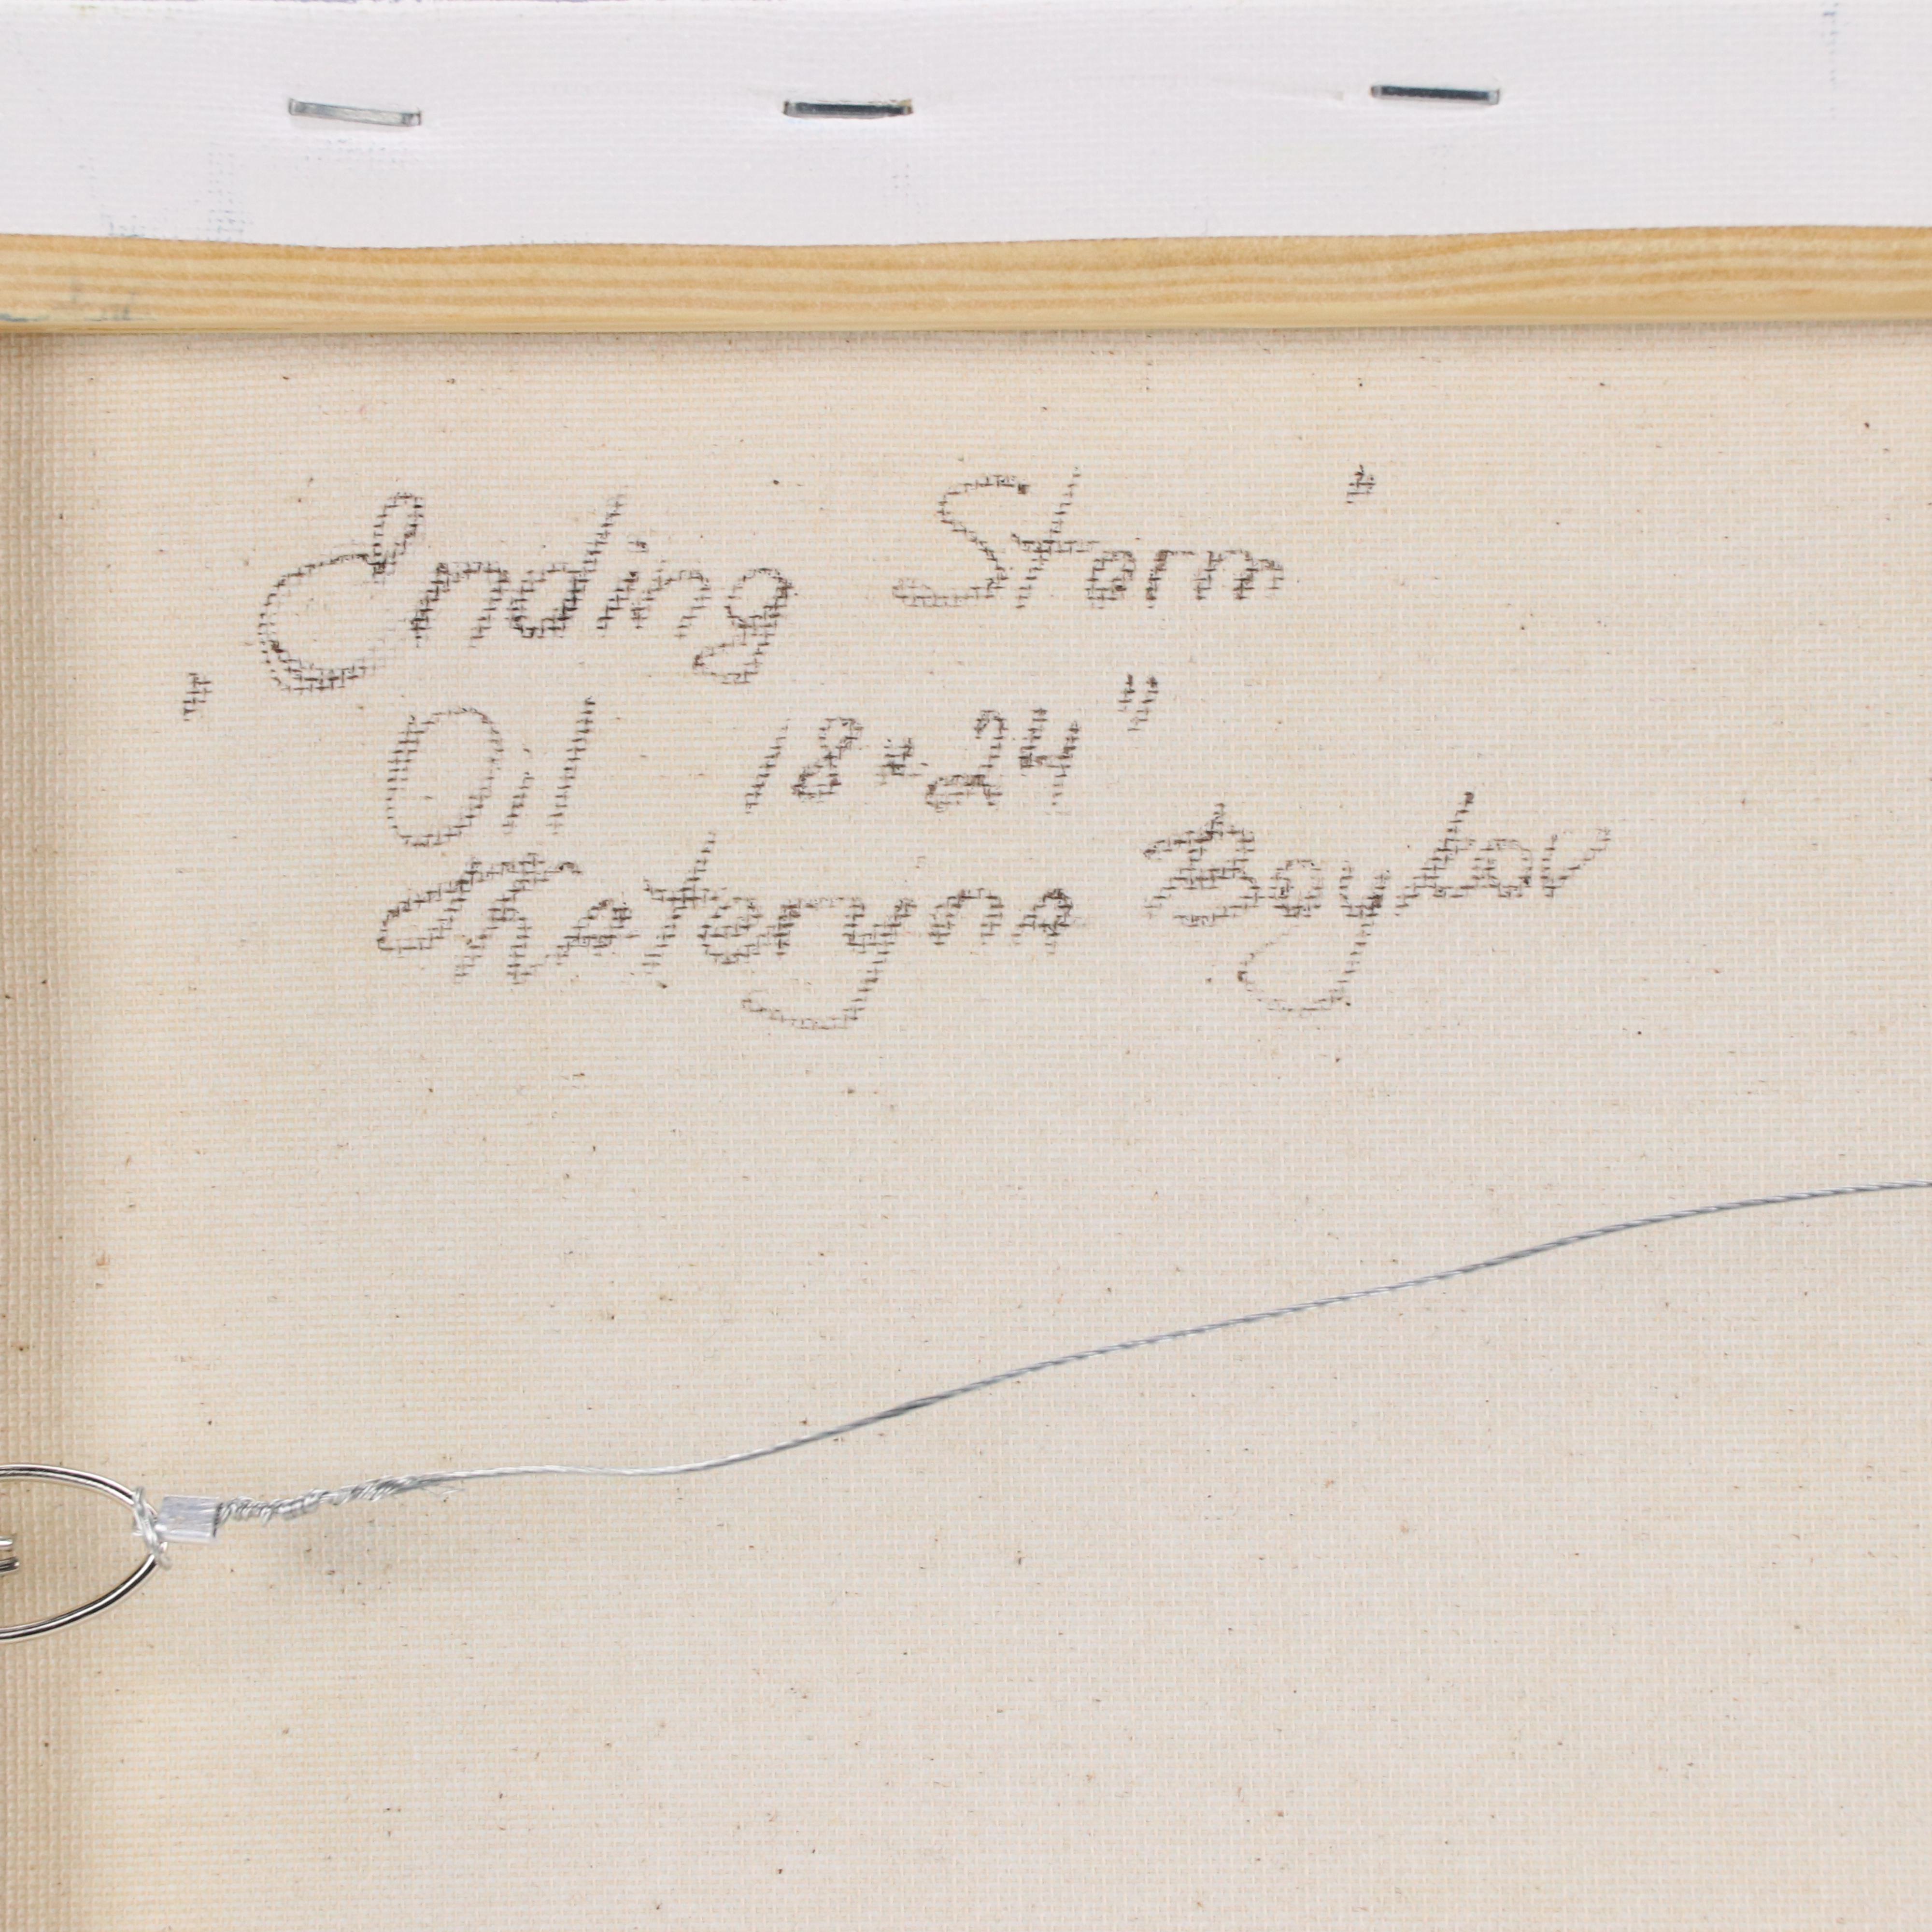 "Ending Storm"
Oil 18x24"
Kateryna Boyko